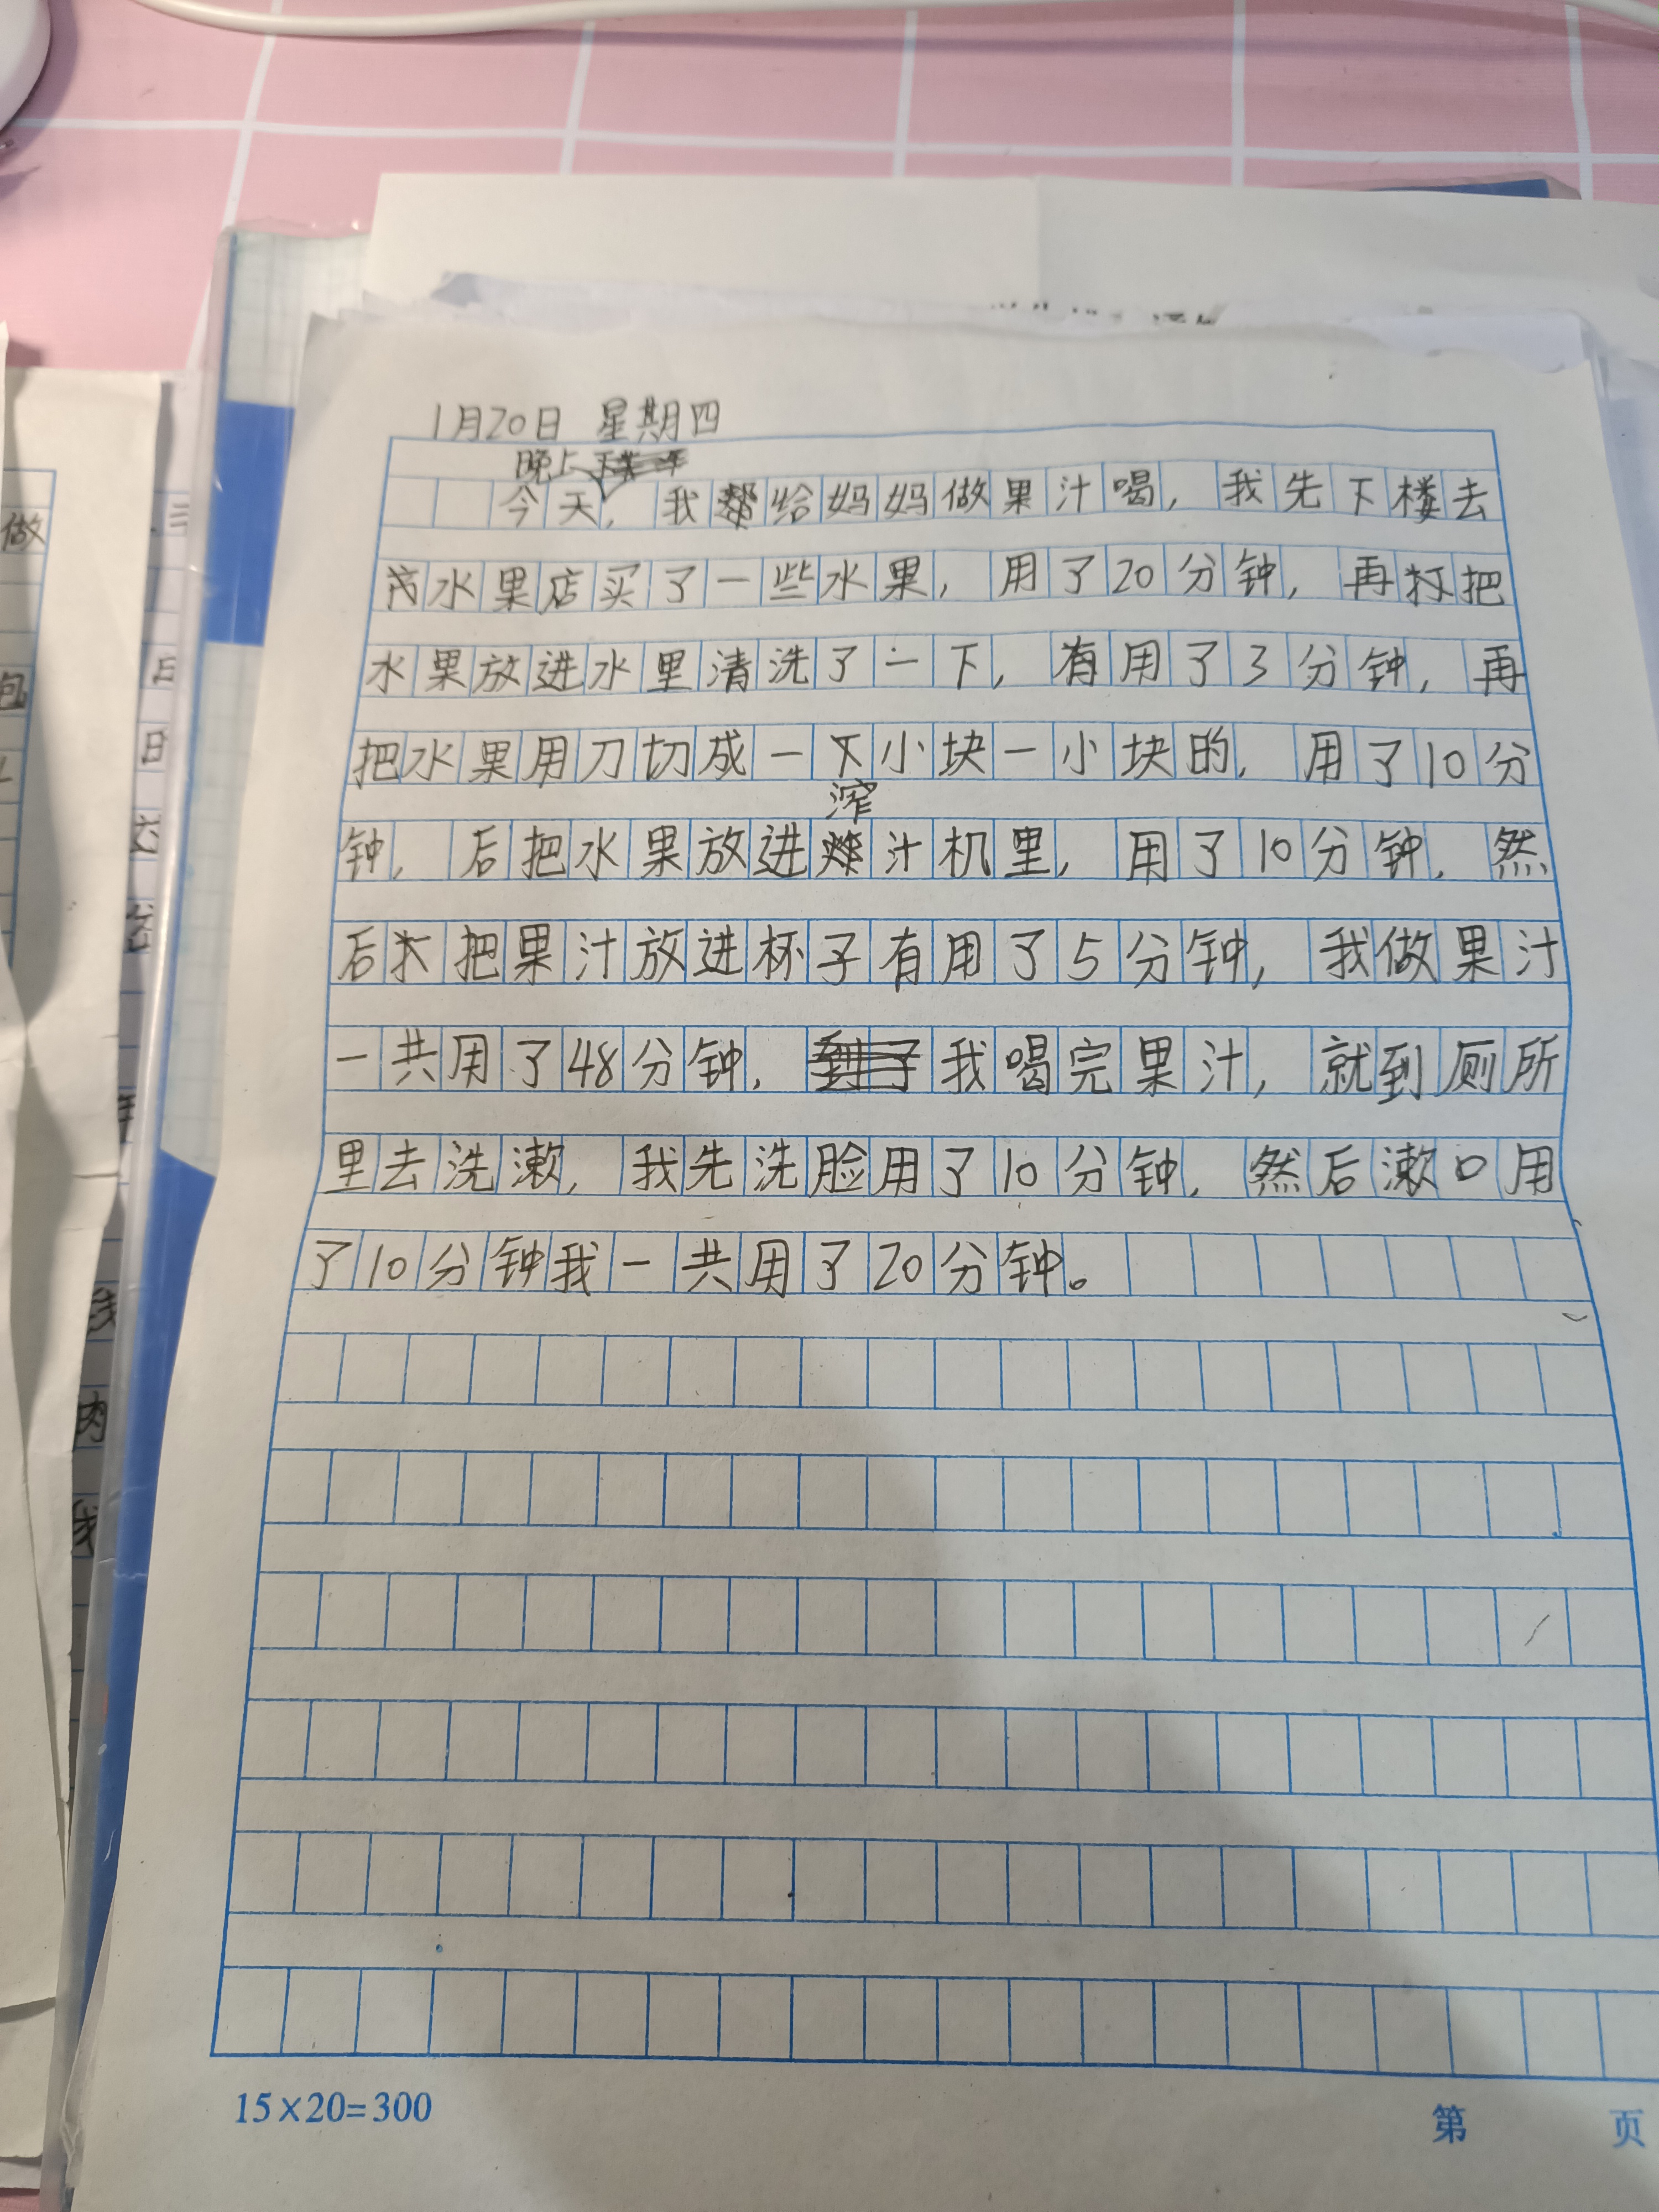 1月20日 星期四
晚上
今天,我给妈妈做果汁喝,我先下楼去
水果店买了一些水果,用了20分钟,再把
水果放进水里清洗了一下,有用了3分钟,再
把水果用刀切成一小块一小块的,用了10分
榨
钟,后把水果放进汁机里,用了10分钟.然
后把果汁放进杯子有用了5分钟,我做果汁
一共用了48分钟,我喝完果汁,就到厕所
里去洗漱,我先洗脸用了10分钟,然后漱口用
了10分钟我一共用了20分钟。
15×20=300
第 页
做
包
三
日
日
六
肉
我